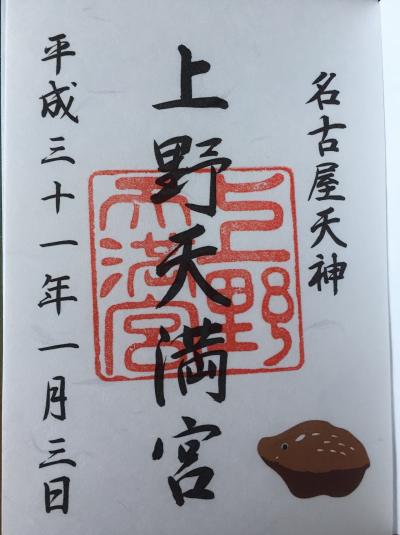 名古屋天神
上野天満宮
上野天満宮
平成三十一年一月三日